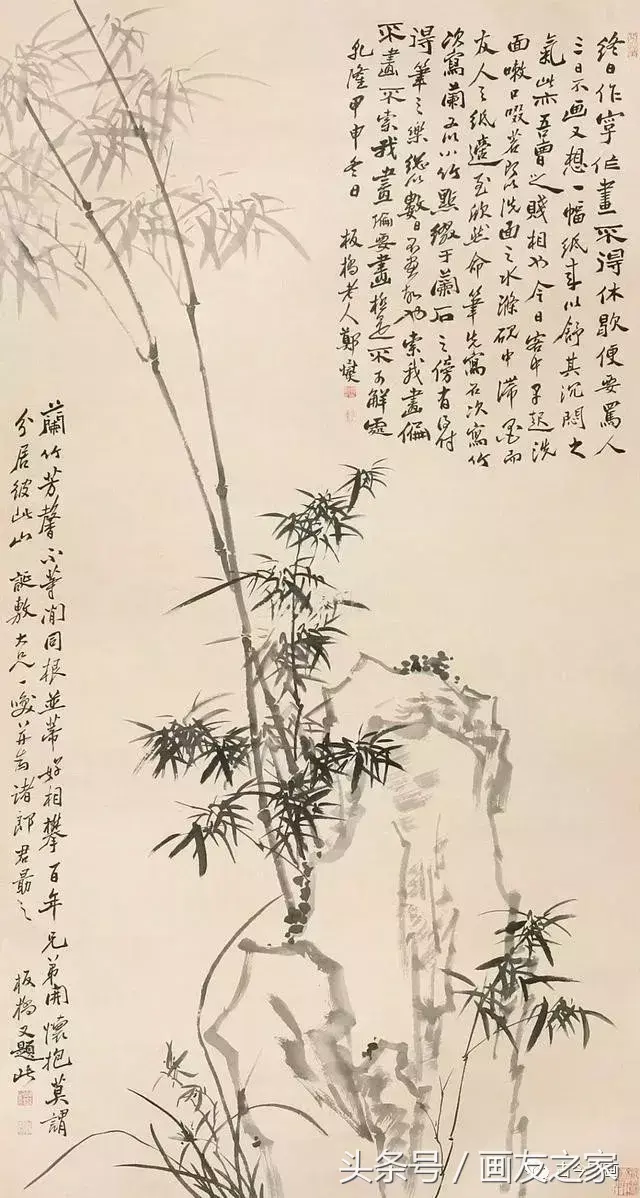 終日作字作畫不得休歇便要罵人
三日不画又想一幅紙來以舒其沉悶之
氣此亦吾曹之賤相也今日客中早起洗
面嗽口啜茗即以洗面之水滌硯中滯墨而
友人之紙適至欣然命筆先寫石次寫竹
次寫蘭又以小竹點綴于蘭石之傍有
得筆之樂總以數日不畫故也索我畫偏
不畫不索我畫偏要畫極是不可解處
乾隆甲申冬日 板橋老人鄭燮
蘭竹芳馨不等閒同根並蒂好相攀百年兄弟開懷抱莫謂
分居彼此山 誕敷大兄一笑并示諸郎君勗之 板橋又題此
头条号／画友之家